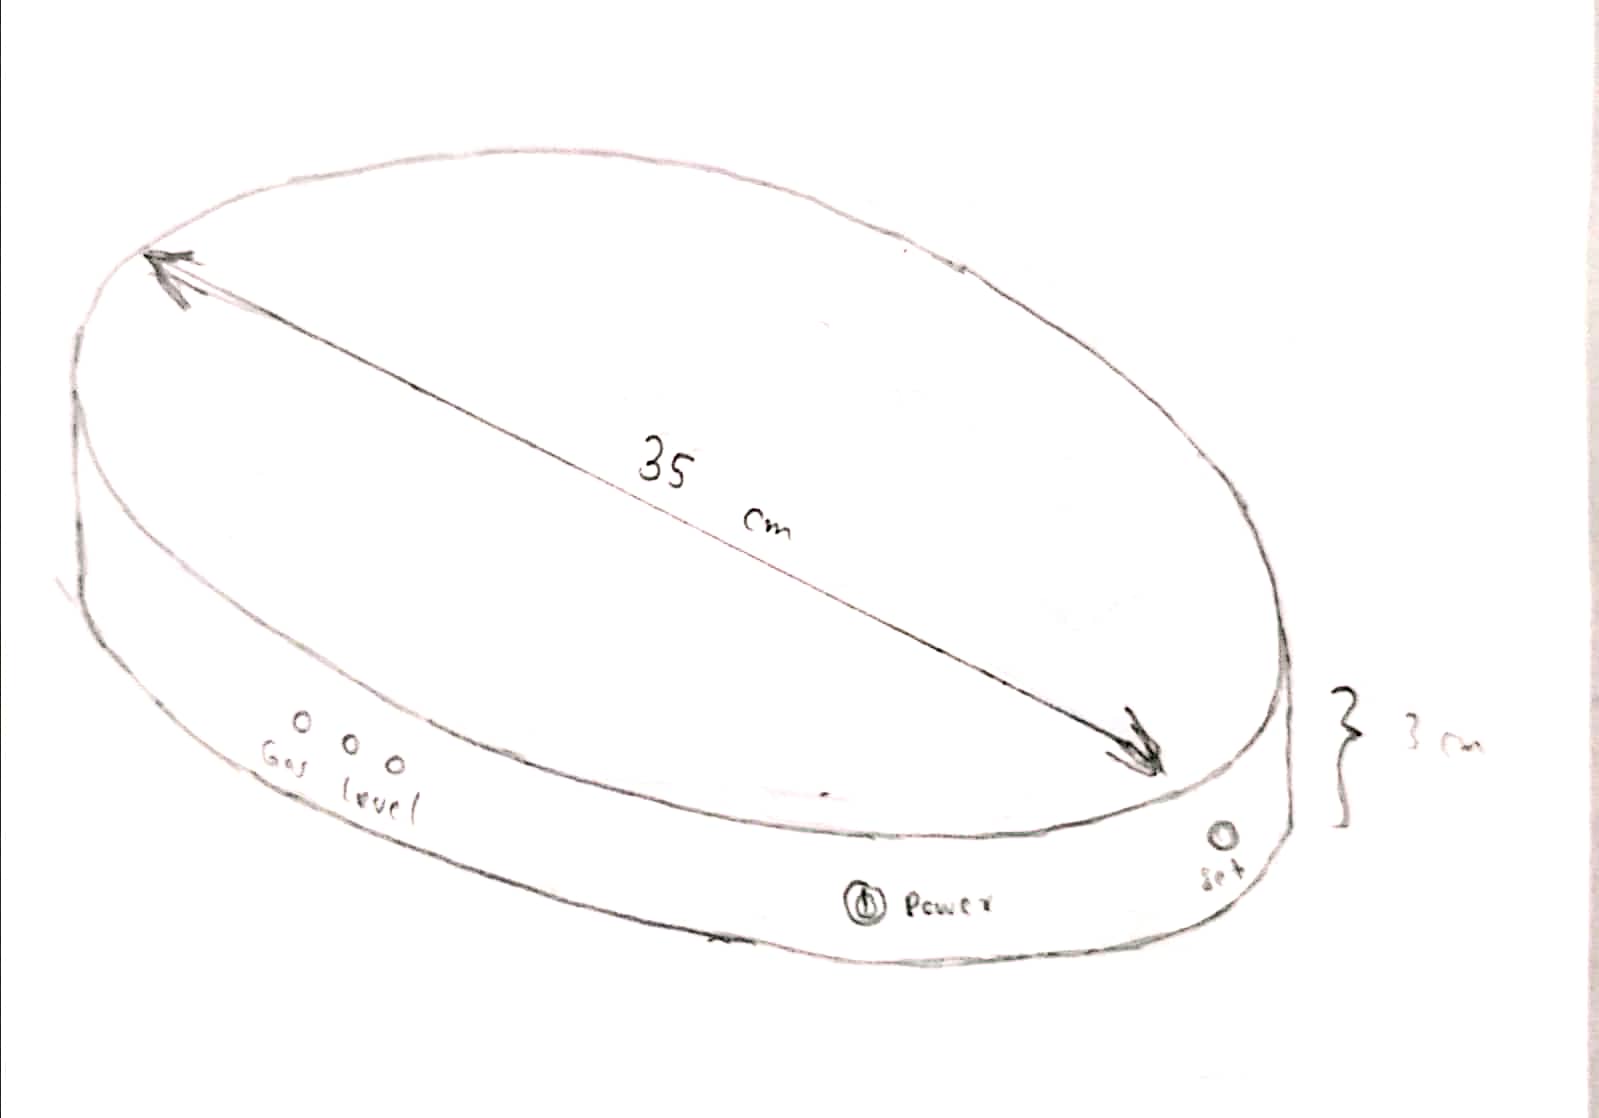 35
cm
3 cm
Gas Level
Power
Set